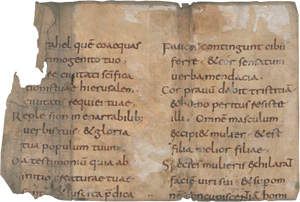 rahel quē coaequas
imogenito tuo
e civitati scifica
tionistuae hierusalem
civitati requietuae
Reple sion inenarrabilib;
verbistuis & gloria
tua populum tuum
Da testimoniū quia ab
initio creaturae tuae
Fauces contingunt cibū
ferre & cor sensatum
verba mendacia.
Cor pravū dabit tristitiā
& homo peritus resistit
illi. Omnē masculum
excipi& mulier & est
filia melior filiae.
Species mulieris exhilarat
faciē viri sui & sup om